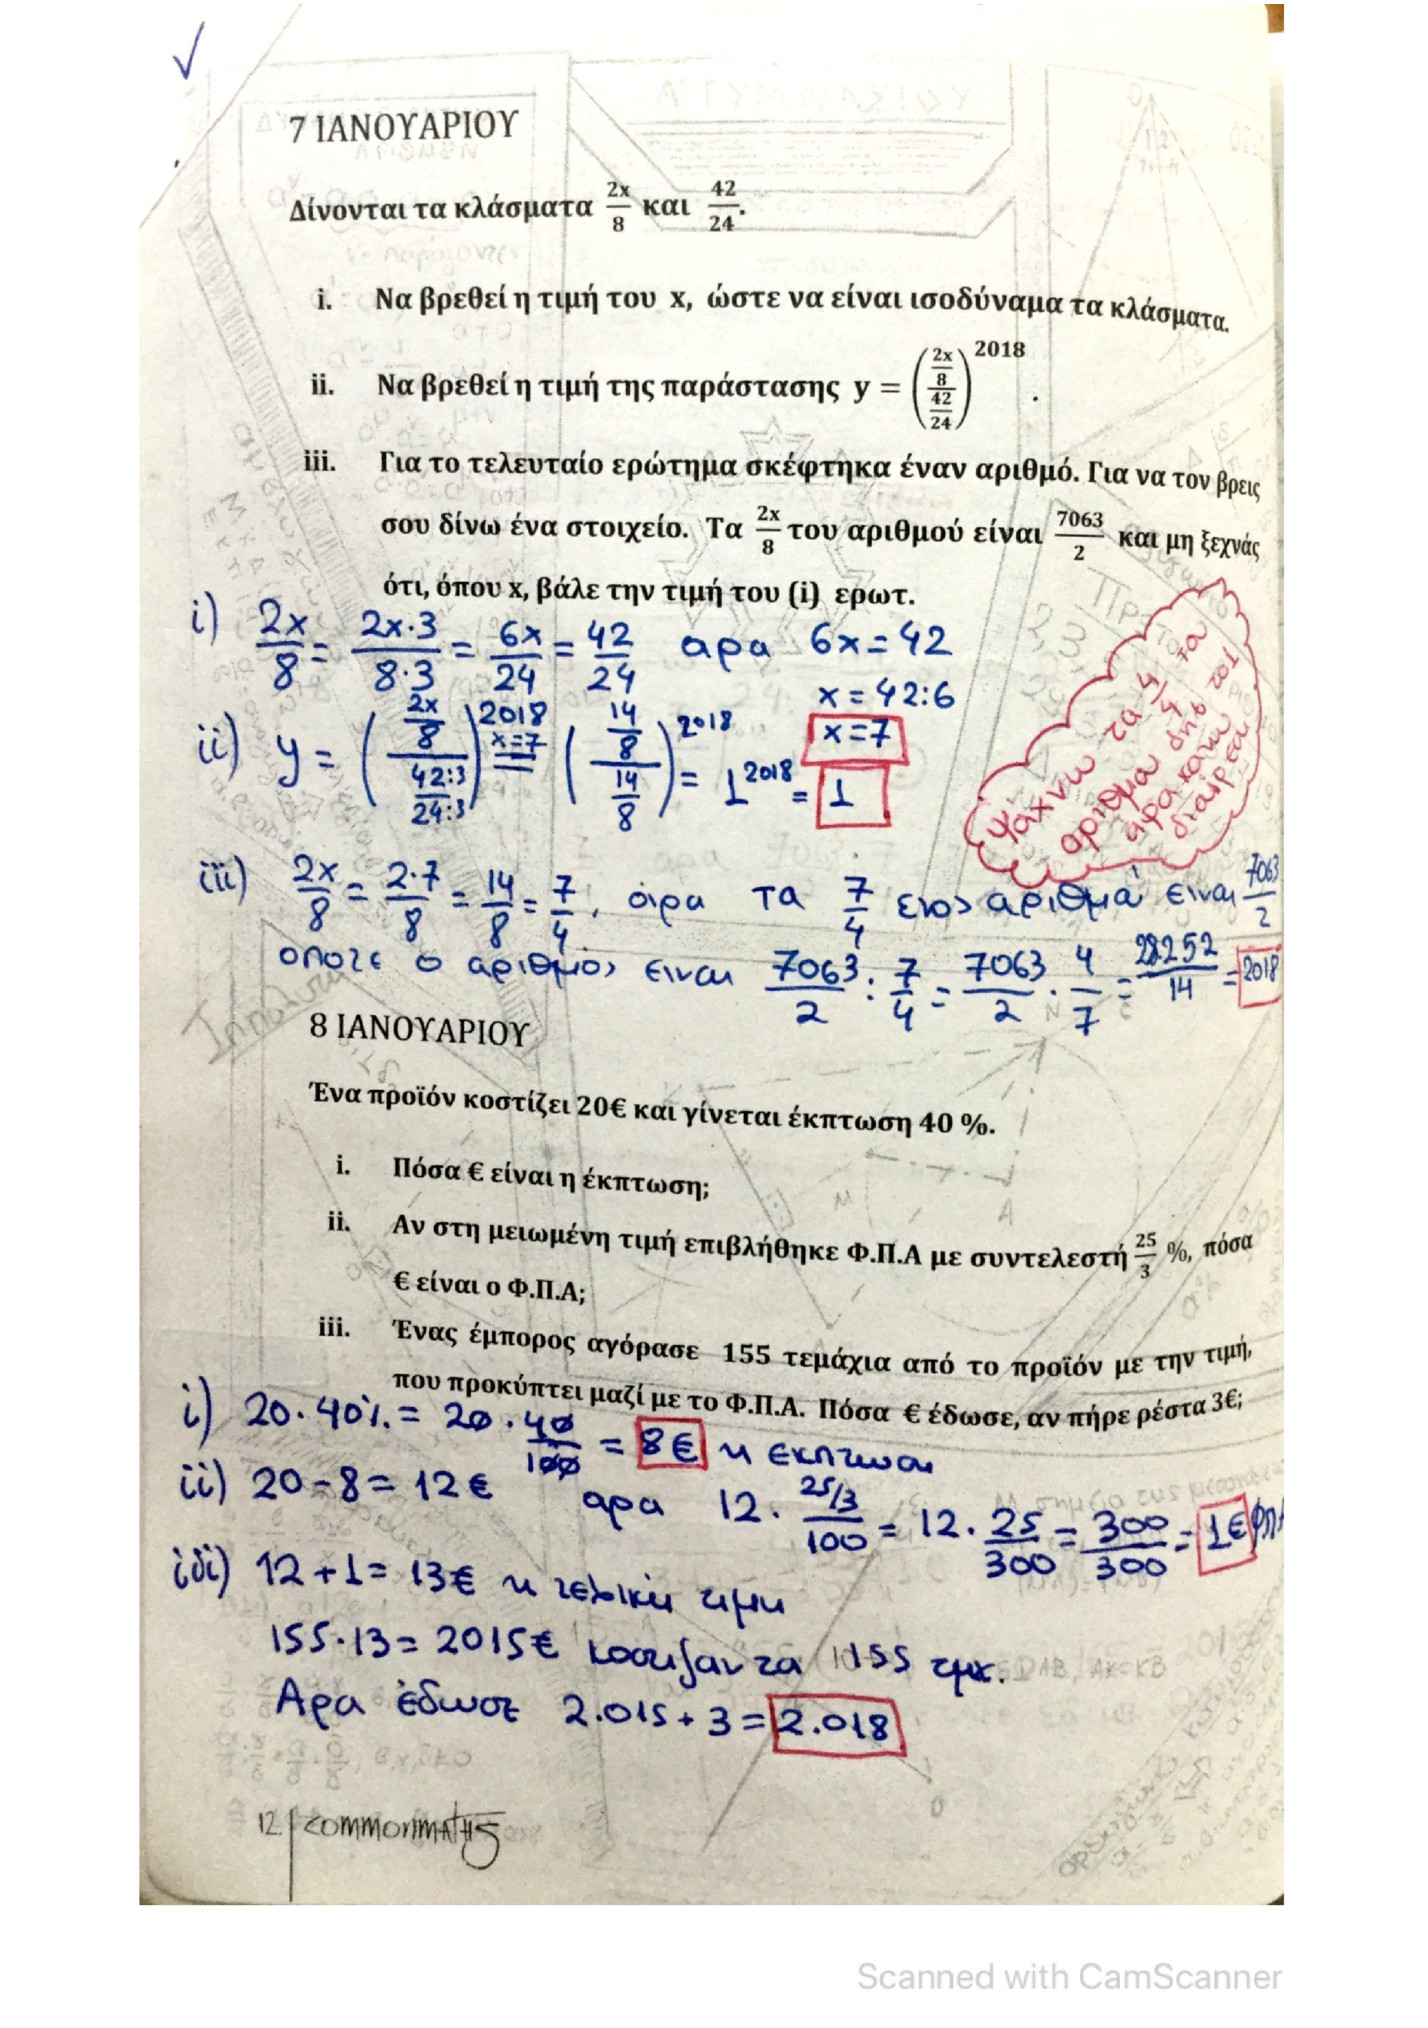 7 ΙΑΝΟΥΑΡΙΟΥ
Δίνονται τα κλάσματα 2x/8 και 42/24.
i. Να βρεθεί η τιμή του x, ώστε να είναι ισοδύναμα τα κλάσματα.
ii. Να βρεθεί η τιμή της παράστασης y = ((2x/8)/(42/24))^2018 .
iii. Για το τελευταίο ερώτημα σκέφτηκα έναν αριθμό. Για να τον βρεις
σου δίνω ένα στοιχείο. Τα 2x/8 του αριθμού είναι 7063/2 και μη ξεχνάς
ότι, όπου x, βάλε την τιμή του (i) ερωτ.
i) 2x/8 = 2x·3/8·3 = 6x/24 = 42/24 αρα 6x = 42
x = 42:6
x = 7
ii) y = ((2x/8)/(42:3/24:3))^2018 x=7 = ((14/8)/(14/8))^2018 = 1^2018 = 1
Ψάχνω τα 4/4 του
αριθμού
αρα κανω
διαίρεση
iii) 2x/8 = 2·7/8 = 14/8 = 7/4, άρα τα 7/4 ενος αριθμού ειναι 7063/2
οποτε ο αριθμος ειναι 7063/2 : 7/4 = 7063/2 · 4/7 = 28252/14 = 2018
8 ΙΑΝΟΥΑΡΙΟΥ
Ένα προϊόν κοστίζει 20€ και γίνεται έκπτωση 40 %.
i. Πόσα € είναι η έκπτωση;
ii. Αν στη μειωμένη τιμή επιβλήθηκε Φ.Π.Α με συντελεστή 25/3 %, πόσα
€ είναι ο Φ.Π.Α;
iii. Ένας έμπορος αγόρασε 155 τεμάχια από το προϊόν με την τιμή,
που προκύπτει μαζί με το Φ.Π.Α. Πόσα € έδωσε, αν πήρε ρέστα 3€;
i) 20·40% = 20 · 40/100 = 8€ η εκπτωση
ii) 20 - 8 = 12€ αρα 12 · 25/3/100 = 12 · 25/300 = 300/300 = 1€ ΦΠΑ
iii) 12 + 1 = 13€ η τελική τιμη
155·13 = 2015€ κοστιζαν τα 155 τμχ.
Αρα έδωσε 2.015 + 3 = 2.018
12 | COMMONMATHS
Scanned with CamScanner